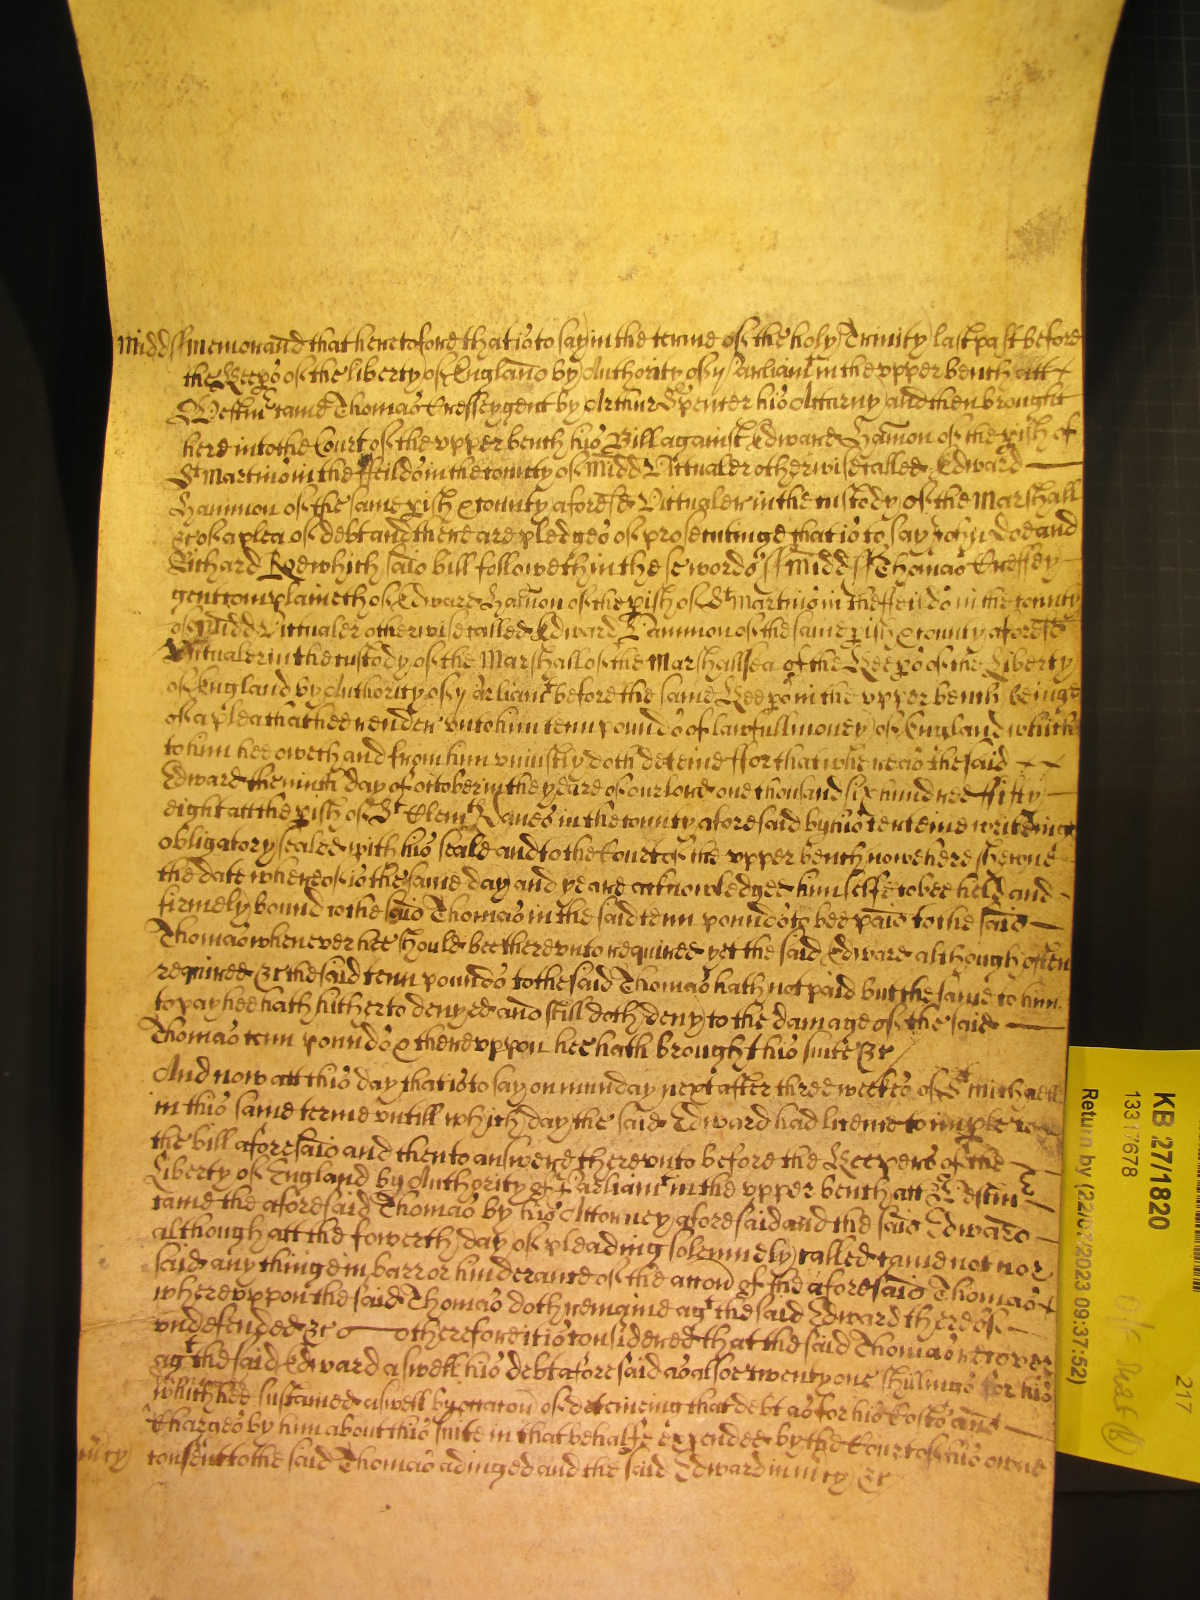 Midd ss Memorand that heretofore that is to say in the terme of the holy Trinity last past before
the Keeps of the liberty of England by Authority of Parliamt in the upper bench att
Westmr came Thomas Cressey gent by Arthur Spencer his Attorny and then brought
here into the Court of the upper bench his Bill against Edward Hamon of the pish of
St Martins in the ffeilds in the county of Midd Vittualer otherwise called Edward
Hammon of the same pish & county aforesd Vittualer in the custody of the Marshall
&c of a plea of debt and there are pledges of prosecutinge that is to say John Doe and
Richard Roe which said bill followeth in these words ss Midd ss Thomas Cressey
gent complaineth of Edward Hamon of the pish of St Martins in the ffeilds in the county
of Midd Vittualer otherwise called Edward Hammon of the same pish & county aforesd
Vittualer in the custody of the Marshall of the Marshallsea of the Keeps of the Liberty
of England by Authority of Parliamt before the same Keeps in the upper bench beinge
of a plea that hee render unto him tenn pounds of lawfull money of England which
to him hee oweth and from him uniustly doth deteine ffor that whereas the said
Edward the ninth day of october in the yeare of our lord one thousand six hundred ffifty
eight att the pish of St Clemt Danes in the county aforesaid by his certeine writeinge
obligatory sealed with his seale and to the Court of the upper bench nowe here shewne
the date whereof is the same day and yeare acknowledged himselfe to bee held and
firmely bound to the said Thomas in the said tenn pounds to bee paid to the said
Thomas whenever hee should bee thereunto required yet the said Edward although often
required &c the said tenn pounds to the said Thomas hath not paid but the same to him
to pay hee hath hitherto denyed and still doth deny to the damage of the said
Thomas tenn pounds & thereuppon hee hath brought his suite &c
And now att this day that is to say on munday next after three weekes of St Michaell
in this same terme untill which day the said Edward had licence to imple to
the bill aforesaid and then to answere thereunto before the Keepers of the
Liberty of England by Authority of Parliamt in the upper bench att Westmr
came the aforesaid Thomas by his Attorney aforesaid and the said Edward
although att the fowerth day of pleading solemnely called came not nor
said any thinge in barr or hinderance of the accon of the aforesaid Thomas
whereuppon the said Thomas doth remaine agt the said Edward thereof
undefended &c therefore it is considered that the said Thomas recover
agt the said Edward aswell his debt aforesaid as alsoe twenty one shillings for his
which hee sustained aswell by occacon of deteineing that debt as for his Costs and
Charges by him about this suite in that behalfe expended by the Court of his owne
consent to the said Thomas adiuged and the said Edward in mcy &c
mcy
KB 27/1820
13317678
Return by (22/07/2023 09:37:52)
217